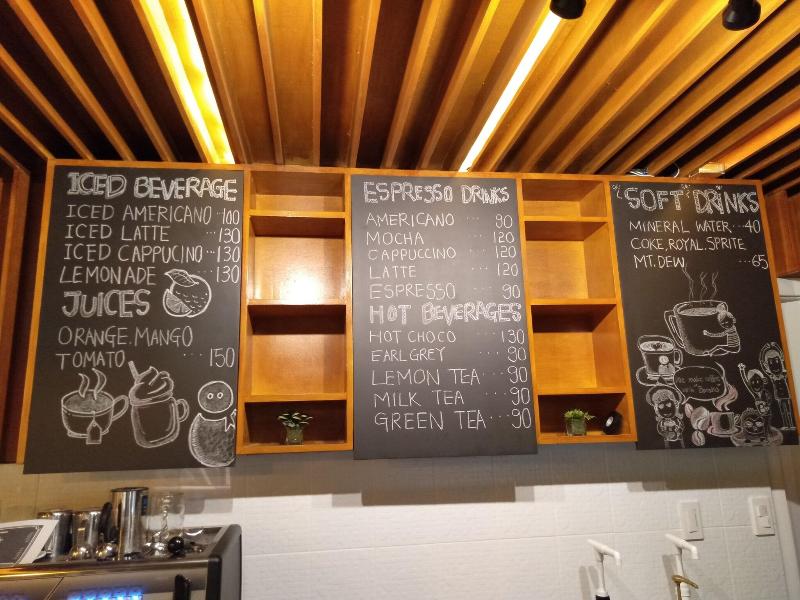 ICED BEVERAGE
ICED AMERICANO ·· 100
ICED LATTE ··· 130
ICED CAPPUCINO ··· 130
LEMONADE ··· 130
JUICES
ORANGE. MANGO
TOMATO ··· 150
ESPRESSO DRINKS
AMERICANO ··· 90
MOCHA ··· 120
CAPPUCCINO ··· 120
LATTE ··· 120
ESPRESSO ··· 90
HOT BEVERAGES
HOT CHOCO ···· 130
EARL GREY ···· 90
LEMON TEA ··· 90
MILK TEA ··· 90
GREEN TEA ··· 90
SOFT DRINKS
MINERAL WATER ··· 40
COKE, ROYAL. SPRITE
MT. DEW. ··· 65
We make coffee